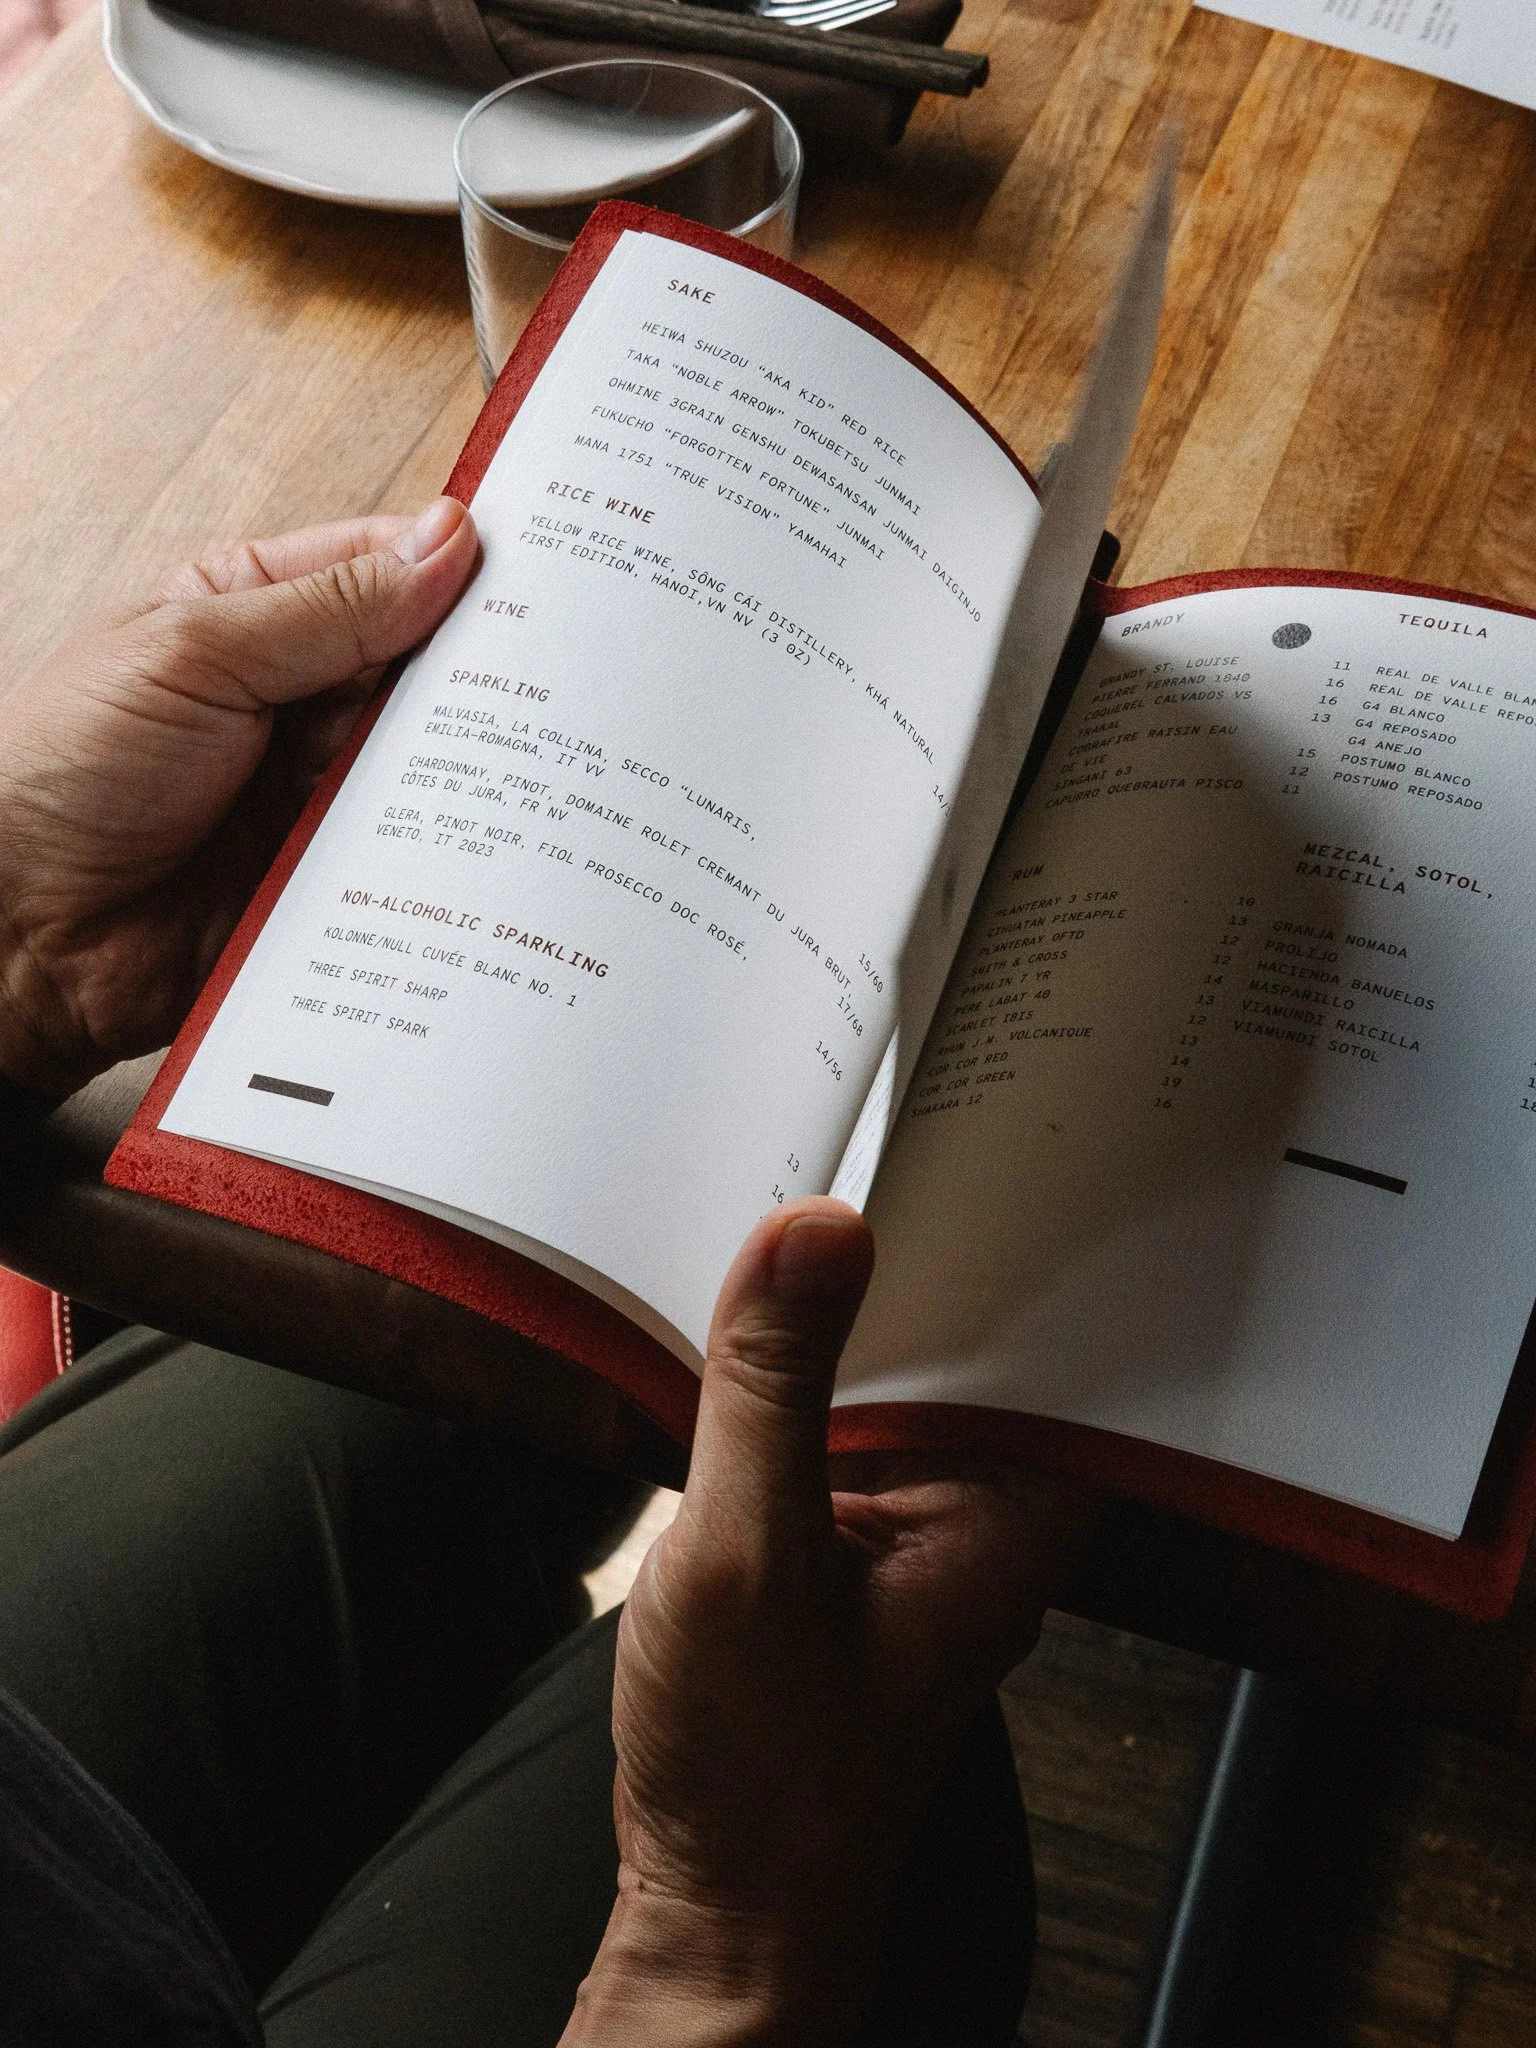 SAKE
HEIWA SHUZOU “AKA KID” RED RICE
TAKA “NOBLE ARROW” TOKUBETSU JUNMAI
OHMINE 3GRAIN GENSHU DEWASANSAN JUNMAI DAIGINJO
FUKUCHO “FORGOTTEN FORTUNE” JUNMAI
MANA 1751 “TRUE VISION” YAMAHAI
RICE WINE
YELLOW RICE WINE, SÔNG CÁI DISTILLERY, KHÁ NATURAL
FIRST EDITION, HANOI,VN NV (3 OZ)
14/
WINE
SPARKLING
MALVASIA, LA COLLINA, SECCO “LUNARIS,
EMILIA-ROMAGNA, IT VV
15/60
CHARDONNAY, PINOT, DOMAINE ROLET CREMANT DU JURA BRUT,
CÔTES DU JURA, FR NV
17/68
GLERA, PINOT NOIR, FIOL PROSECCO DOC ROSÉ,
VENETO, IT 2023
14/56
NON-ALCOHOLIC SPARKLING
KOLONNE/NULL CUVÉE BLANC NO. 1
13
THREE SPIRIT SHARP
16
THREE SPIRIT SPARK
BRANDY
BRANDY ST. LOUISE 11
PIERRE FERRAND 1840 16
COQUEREL CALVADOS VS 16
TRAKAL 13
COBRAFIRE RAISIN EAU
DE VIE 15
SINGANI 63 12
CAPURRO QUEBRAUTA PISCO 11
RUM
PLANTERAY 3 STAR 10
CIHUATAN PINEAPPLE 13
PLANTERAY OFTD 12
SMITH & CROSS 12
PAPALIN 7 YR 14
PERE LABAT 40 13
SCARLET IBIS 12
RHUM J.M. VOLCANIQUE 13
COR COR RED 14
COR COR GREEN 19
SHAKARA 12 16
TEQUILA
REAL DE VALLE BLAN
REAL DE VALLE REPO
G4 BLANCO
G4 REPOSADO
G4 ANEJO
POSTUMO BLANCO
POSTUMO REPOSADO
MEZCAL, SOTOL,
RAICILLA
GRANJA NOMADA
PROLIJO
HACIENDA BANUELOS
MASPARILLO
VIAMUNDI RAICILLA
VIAMUNDI SOTOL